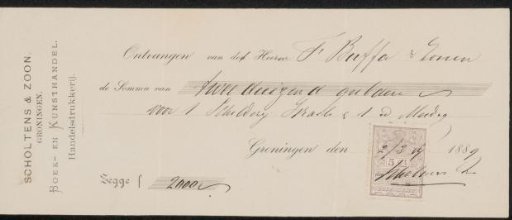 SCHOLTENS & ZOON.
GRONINGEN.
BOEK- EN KUNSTHANDEL.
Handelsdrukkerij.
Ontvangen van den Heeren F Buffa & Zonen
de Somma van twee duizend gulden
voor 1 Schildery Israels & 1 id Mesdag
Groningen den 2/3 1889
5 Ct
Scholtens & Zn
Zegge f 2000